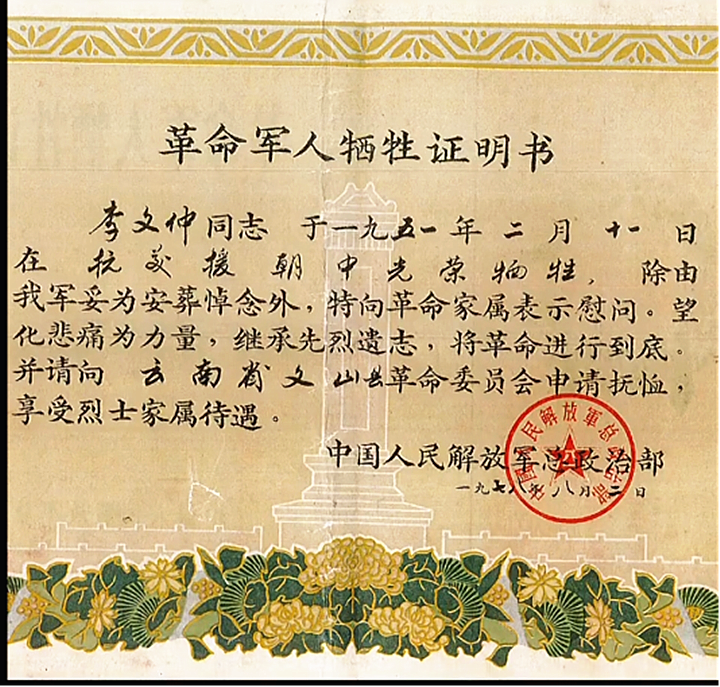 革命军人牺牲证明书
李文仲同志 于一九五一年二月十一日
在抗美援朝中光荣牺牲，除由
我军妥为安葬悼念外，特向革命家属表示慰问。望
化悲痛为力量，继承先烈遗志，将革命进行到底。
并请向云南省文山县革命委员会申请抚恤，
享受烈士家属待遇。
中国人民解放军总政治部
一九七八年八月二日
中國人民解放軍总政治部